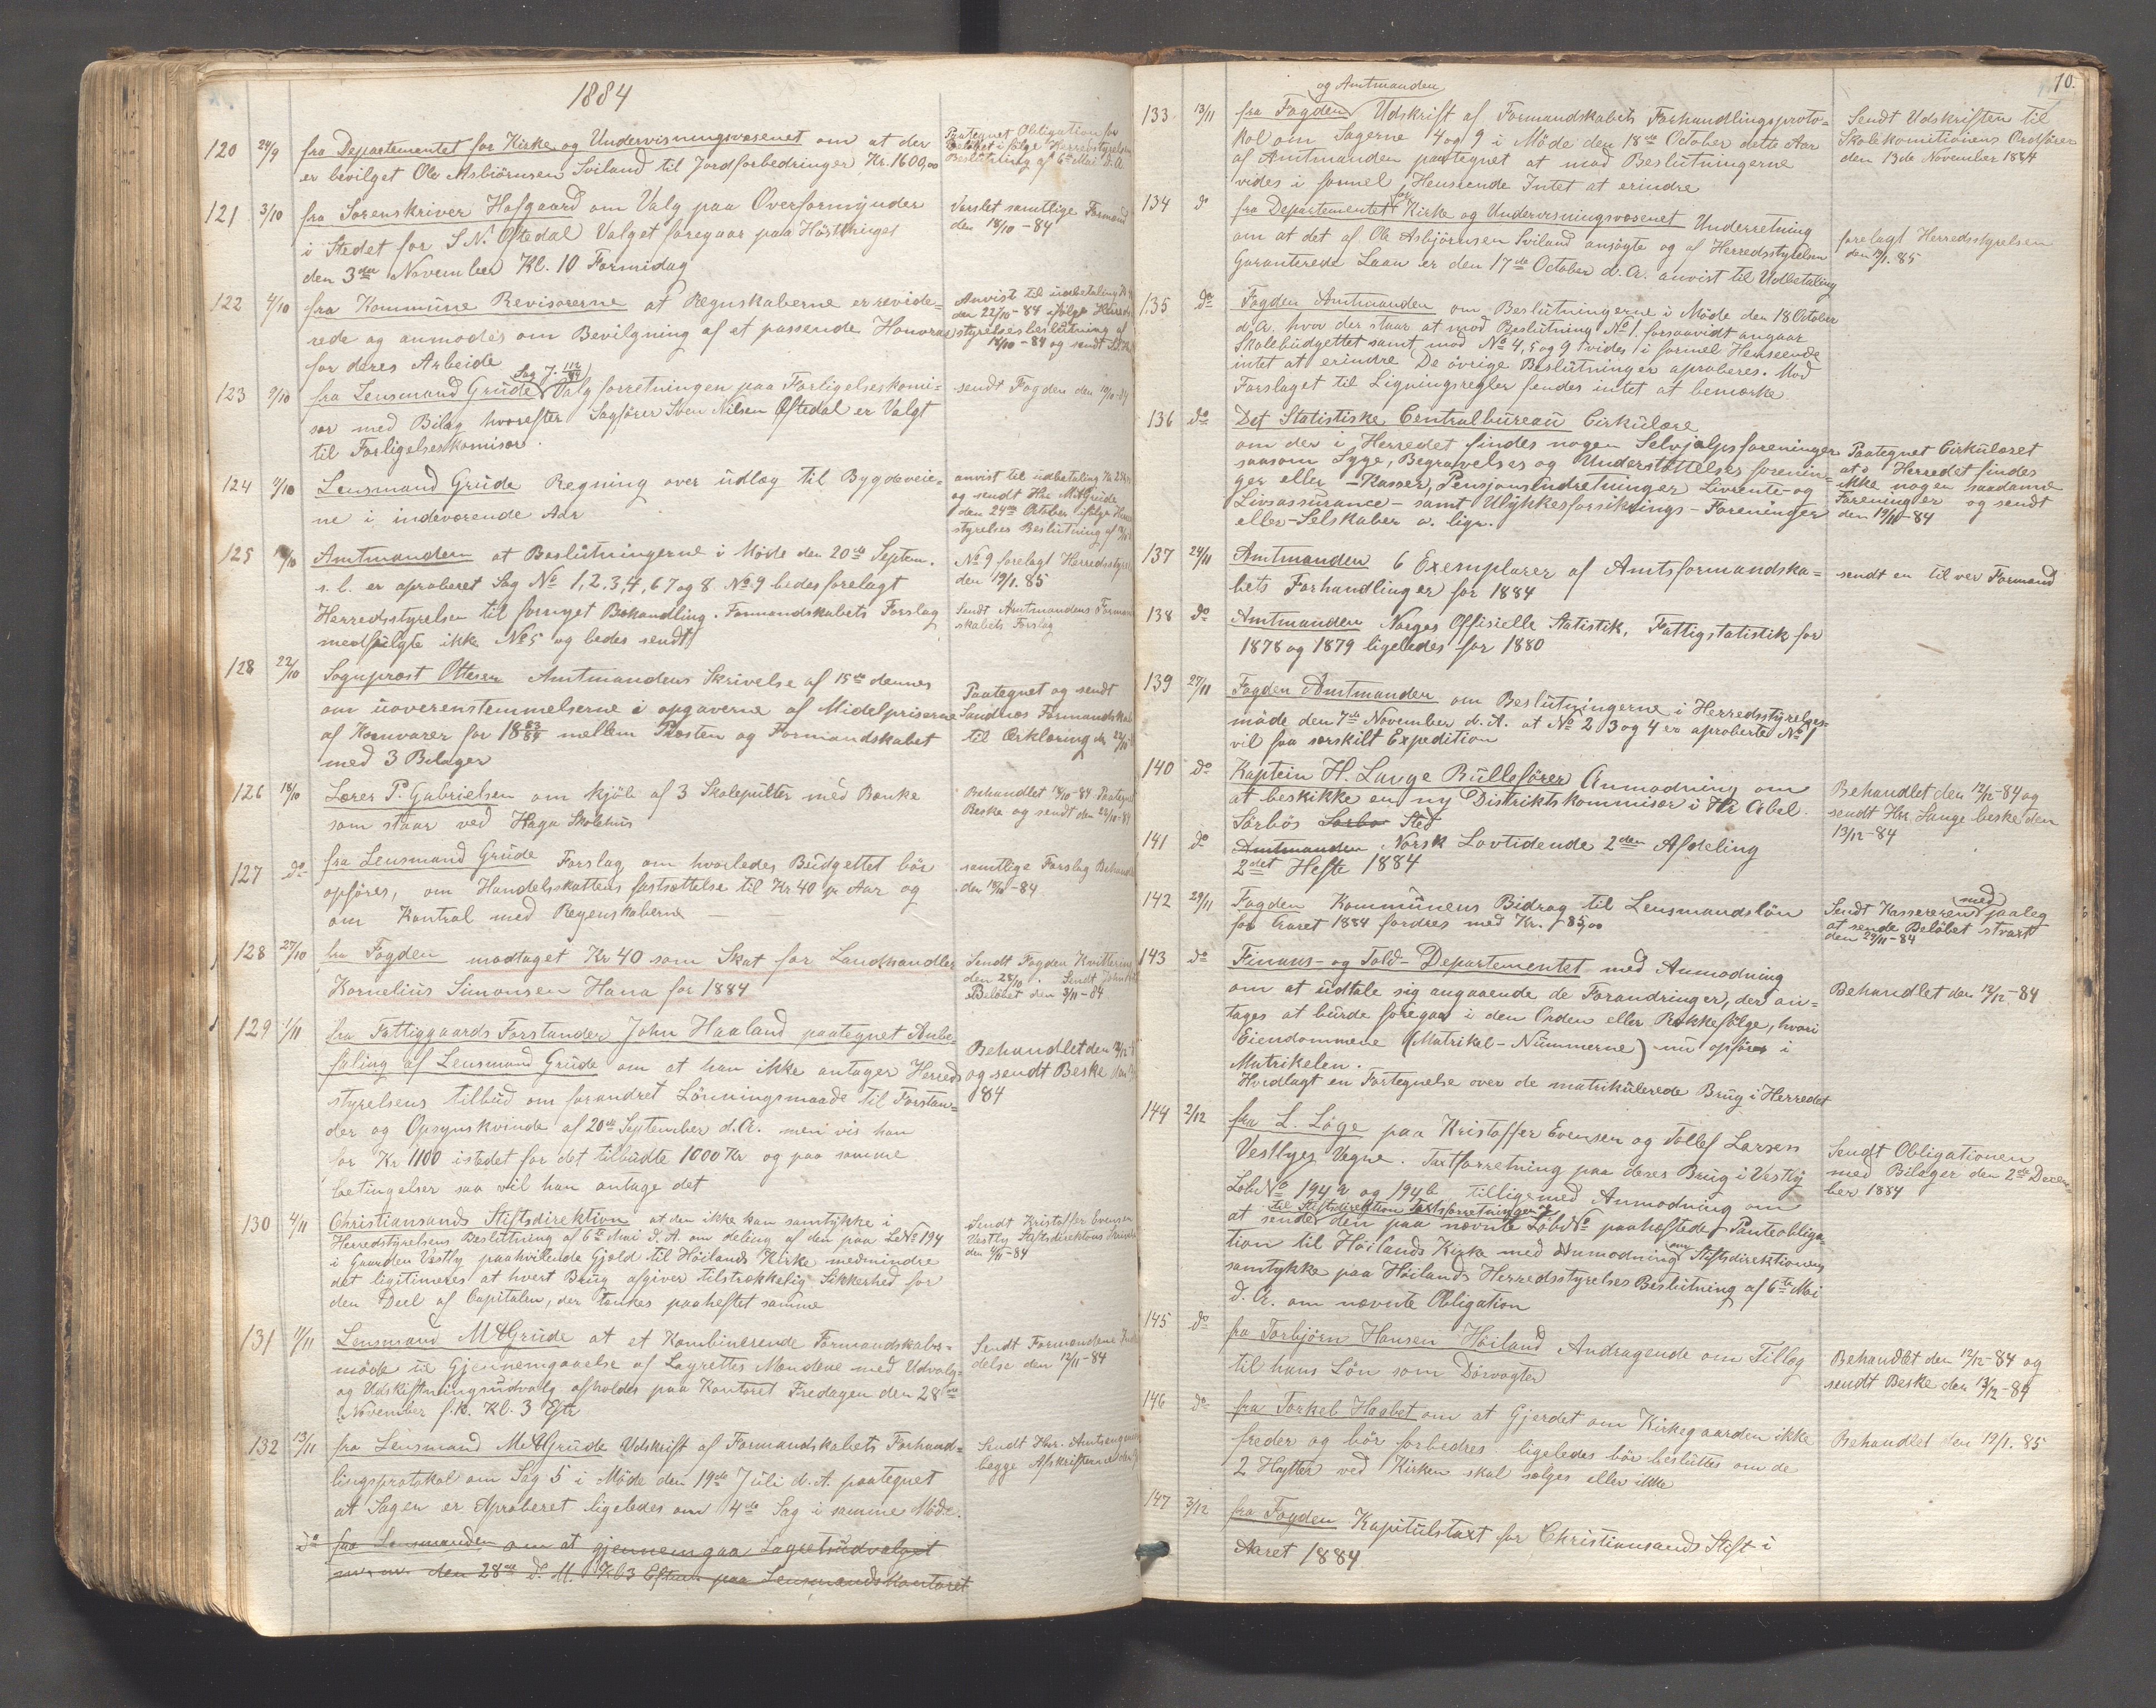 1884
120 24/9 fra Departementet for Kirke og Undervisningsvæsenet om at der
er bevilget Ole Asbiörnsen Sviland til Jordforbedringer Kr. 1600,00
Paategnet Obligation for
Beløbet ifølge Herredsstyrelsens
Beslutning af 6te Mai d.A.
121 3/10 fra Sorenskriver Hofgaard om Valg paa Overformynder
i Stedet for S N. Østedal Valget foregaar paa Hösttinget
den 3die November Kl. 10 Formidag
Varslet samtlige Formænd
den 18/10 - 84
122 4/10 fra Kommune Revisorerne at Regnskaberne er revide-
rede og anmodes om Bevilgning af et passende Honorar
for deres Arbeide
Anvist til udbetaling
den 22/10 - 84 ifølge Herreds
styrelsesbeslutning af
18/10 - 84 og sendt
123 9/10 fra Lensmand Grude Sag J. 112/84 Valgforretningen paa Forligelseskomi-
sær med Bilag hvorefter Sagfører Sven Nilsen Østedal er Valgt
til Forligelseskomisær.
sendt Fogden den 10/10 - 84
124 11/10 Lensmand Grude Regning over udlæg til Bygdeveie-
ne i indeværende Aar
anvist til udbetaling
og sendt Hr. M Grude
den 24de October ifølge Herreds
styrelses Beslutning af
125 /10 Amtmanden at Beslutningerne i Möde den 20de Septem.
s. l. er aproberet Sag No 1, 2, 3, 4, 6 7 og 8. No 9 bedes forelagt
Herredsstyrelsen til fornyet Behandling. Formandskabets Forslag
medfulgte ikke No 5 og bedes sendt
No 9 forelagt Herredsstyrel
den 19/1. 85
Sendt Amtmandens Forman
skabets Forslag
128 22/10 Sogneprost Ottesen Amtmandens Skrivelse af 15de dennes
om uoverenstemmelserne i opgaverne af Midelpriserne
af Kornvarer for 1883/84 mellem Prosten og Formandskabet
med 3 Bilager
Paategnet og sendt
Sandnes Formandskab
til Erklæring den 22/10
126 18/10 Lærer P. Gabrielsen om kjöb af 3 Skolepulter med Bænke
som staar ved Haga Skolehus
Behandlet 18/10 - 84 Paategnet
Beske og sendt den 22/10 - 84
127 do fra Lensmand Grude Forslag om hvorledes Budgettet bör
opföres, om Handelsskattens fastsættelse til Kr 40 pr Aar og
om Kontrol med Regenskaberne —
samtlige Forslag Behandlet
den 18/10 - 84.
128 27/10 fra Fogden modtaget Kr 40 som Skat for Landhandler
Kornelius Simonsen Hana for 1884
Sendt Fogden Kvittering
den 28/10. Sendt
Beløbet den 3/11 - 84
129 1/11 fra Fattiggaards Forstander John Haaland paategnet Anbe-
faling af Lensmand Grude om at han ikke antager Herreds
styrelsens tilbud om forandret Lönningsmaade til Forstan-
der og Opsynskvinde af 20de September d.A. men vis han
for Kr 1100 istedet for det tilbudte 1000 Kr og paa samme
betingelser saa vil han antage det
Behandlet den 12/12
og sendt Beske den
84
130 4/11 Christiansands Stiftsdirektion at den ikke kan samtykke i
Herredstyrelsens Beslutning af 6te Mai d. A. om deling af den paa L No 194
i Gaarden Vestly paahvilende Gjæld til Höilands Kirke medmindre
det legitimeres at hvert Brug afgiver tilstrækkelig Sikkerhed for
den Deel af Capitalen, der tænkes paaheftet samme
Sendt Kristoffer Evensen
Vestly Stiftsdirektions Skrivelse
den 4/11 - 84
131 11/11 Lensmand M Grude at et Kombinerende Formandskabs-
möde til Gjennemgaaelse af Lagrettes Mændene med Udvalg-
og Udskiftningsudvalg afholdes paa Kontoret Fredagen den 28de
November f. k. Kl. 3 Eft
Sendt Formændene
delse den 12/11 - 84
132 13/11 fra Lensmand M Grude Udskrift af Formandskabets Forhand-
lingsprotokol om Sag 5 i Möde den 19de Juli d. A. paategnet
at Sagen er Aproberet ligeledes om 4de Sag i samme Möde.
Sendt Hr. Amtsing
begge Afskrifterne den
do fra Lensmanden om at gjennemgaa Lagretsudvalget
den 28de d. M. Kl 3 Efterm paa Lensmandskontoret
70.
133 13/11 fra Fogden og Amtmanden Udskrift af Formandskabets Forhandlingsproto-
kol om Sagerne 4 og 9 i Möde den 18de October dette Aar
af Amtmanden paategnet at mod Beslutningerne
vides i formel Henseende Intet at erindre
Sendt Udskriften til
Skolekomitionens Ordförer
den 13de November 1884
134 do fra Departementet for Kirke og Undervisningsvæsenet Underretning
om at det af Ole Asbjörnsen Sviland ansögte og af Herredsstyrelsen
Garanterede Laan er den 17de October d. A. anvist til Udbetaling
forelagt Herredsstyrelsen
den 19/1. 85
135 do Fogden Amtmanden om Beslutningerne i Möde den 18 October
d. A. hvor der staar at mod Beslutning No 1. forsaavidt angaar
Skolebudgettet samt mod No 4, 5 og 9 vides i formel Henseende
intet at erindre De övrige Beslutninger aproberes. Mod
Forslaget til Ligningsregler fendes intet at bemærke
136 do Det Statistiske Centralbureau Cirkulære
om der i Herredet findes nogen Selvjælpsforeninger
saasom Syge, Begravelses og Understöttelses forenin-
ger eller - Kasser, Pensjonsindretninger Livrente- og
Livsassurance - samt Ulykkesforsikrings - Foreninger
eller - Selskaber o. lign.
Paategnet Cirkulæret
at i Herredet findes
ikke nogen saadanne
Foreninger og sendt
den 19/11 - 84
137 24/11 Amtmanden 6 Exemplarer af Amtsformandska-
bets Forhandlinger for 1884
sendt en til ver Formand
138 do Amtmanden Norges Offisielle Statistik, Fattigstatistik for
1878 og 1879 ligeledes for 1880
139 27/11 Fogden Amtmanden om Beslutningerne i Herredsstyrelses-
möde den 7de November d. A. at No 2 3 og 4 er aproberte No 1
vil faa særskilt Expedition
140 do Kaptein H. Lange Rullefører Anmodning om
at beskikke en ny Distriktskommisær i Hr Abel.
Sörbös Sorbo Sted
Behandlet den 12/12 - 84 og
sendt Hr. Lange beske den
13/12 - 84
141 do Amtmanden Norsk Lovtidende 2den Afdeling
2det Hefte 1884
142 29/11 Fogden Kommunens Bidrag til Lensmandslön
for Aaret 1884 fordres med Kr. 85,00
Sendt Kassereren med paaleg
at sende Beløbet strax
den 29/11 - 84
143 do Finans- og Told- Departementet med Anmodning
om at udtale sig angaaende de Forandringer, der an-
tages at burde foregaa i den Orden eller Rækkefölge, hvori
Eiendommene (Matrikel - Nummerne) nu opföres i
Matrikelen.
Hvedlagt en Fortegnelse over de matrikulerede Brug i Herredet
Behandlet den 12/12 - 84
144 2/12 fra L. Löge paa Kristoffer Evensen og Tollef Larsen
Vestlyes Vegne. Taxtforretning paa deres Brug i Vestly
Löbe No 194 a og 194 b tilligemed Anmodning om
til Stiftsdirektion Taxtforretningen og
at sende den paa nævnte Löb No paaheftede Panteobliga
tion til Höilands Kirke med Anmodning om Stiftsdirektionens
samtykke paa Höilands Herredsstyrelses Beslutning af 6te Mai
d. A. om nævnte Obligation
Sendt Obligationen
med Bilager den 2de Decem-
ber 1884
145 do fra Torbjörn Hansen Höiland Andragende om Tillæg
til hans Lön som Dövogter
Behandlet den 12/12 - 84 og
sendt Beske den 13/12 - 84
146 do fra Torkel Haabet om at Gjerdet om Kirkegaarden ikke
freder og bör forbedres. ligeledes bör besluttes om de
2 Hytter ved Kirken skal sælges eller ikke
Behandlet den 19/1. 85
147 3/12 fra Fogden Kapitulstaxt for Christiansands Stift i
Aaret 1884